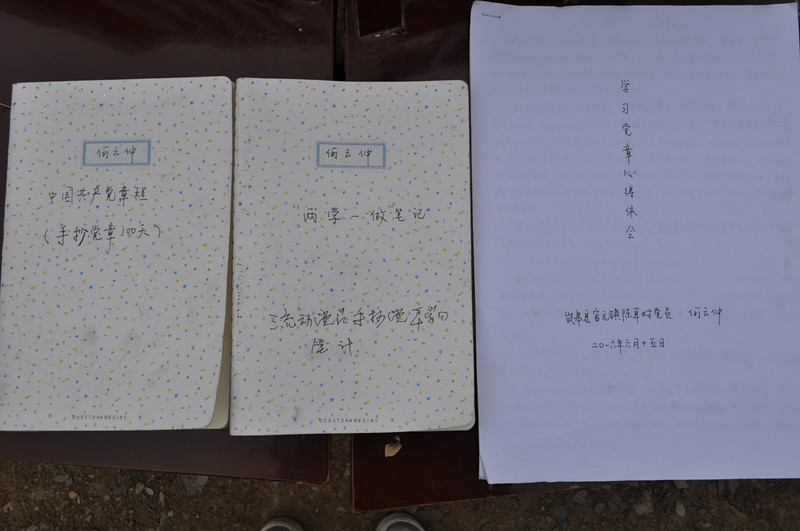 何云仲
中国共产党章程
(手抄党章100天)
何云仲
"两学一做"笔记
流动党员手抄党章学习
学习党章心得体会
镇陈耳村党员：何云仲
二〇一六年六月十五日